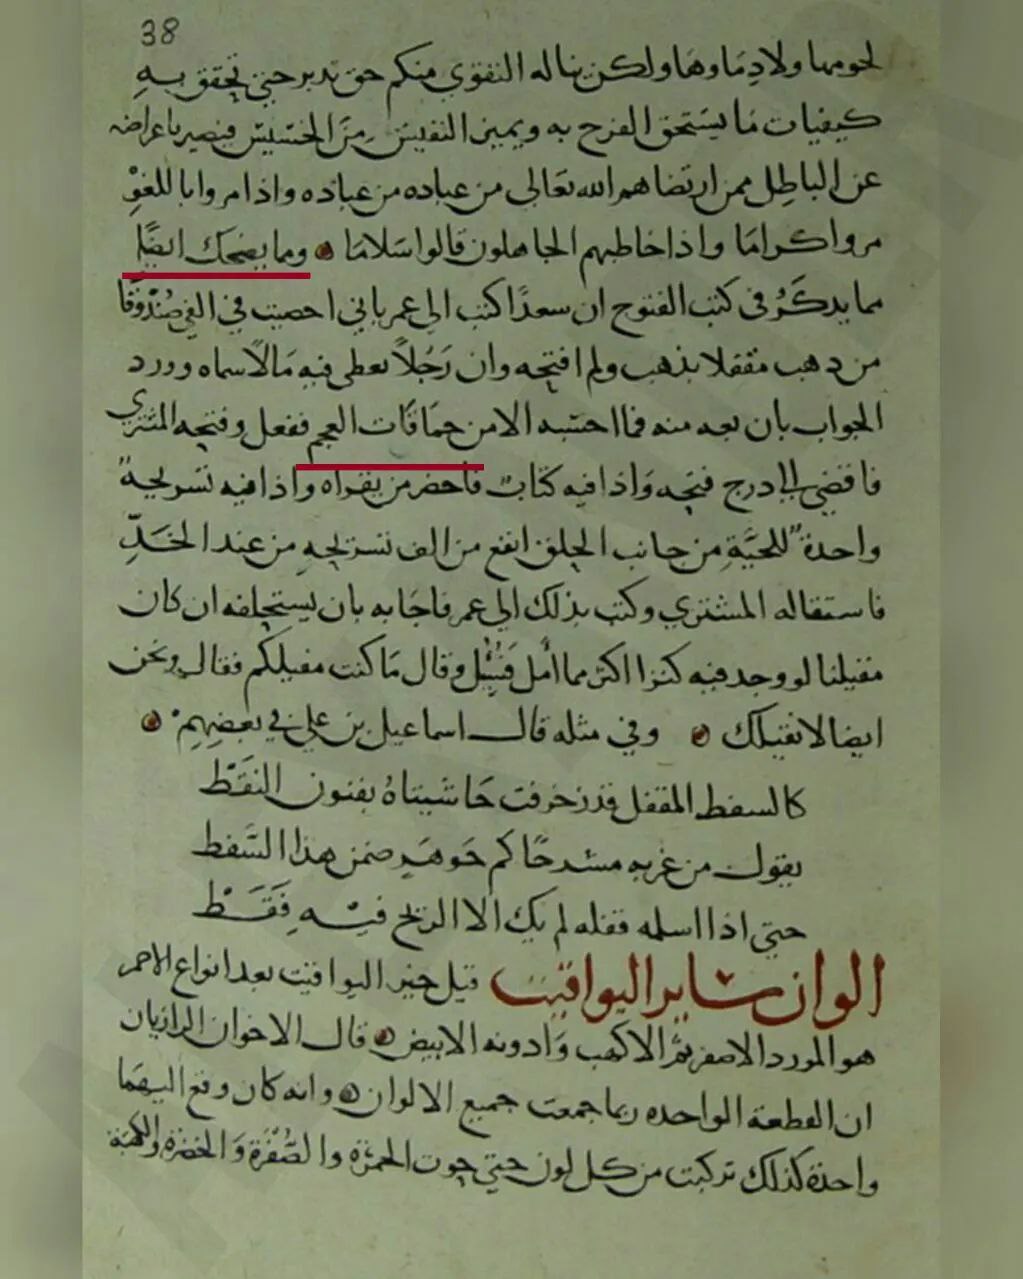 38
لحومها ولا دماوها ولكن يناله التقوي منكم حق تدبر حتي تحقق به
كيفيات ما يستحق الفرح به ويميز النفيس من الخسيس فيصير باعراضه
عن الباطل ممن ارتضاهم الله تعالي من عباده من عباده واذا مروا باللغو
مروا كراما واذا خاطبهم الجاهلون قالوا سلاما وما يضحك ايضا
مما يدكر في كتب الفتوح ان سعدا كتب الي عمر باني احصيت في الفي صندوقا
من دهب مقفلا بذهب ولم افتحه وان رجلا يعطي فيه مالا اسماه وورد
الجواب بان بعه منه فما احتسبه الا من حماقات العجم ففعل وفتحه المشتري
فافضي الي درج فتحه واذا فيه كتاب فاحضر من يقراه واذا فيه تسريحة
واحدة للحية من جانب الحلق انفع من الف تسريحه من عند الخد
فاستقاله المشتري وكتب بذلك الي عمر فاجابه بان يستحلفه ان كان
مقيلنا لو وجد فيه كنزا اكثر مما امل قبيل وقال ما كنت مقيلكم فقال ونحن
ايضا لا نقيلك وفي مثله قال اسماعيل بن علي في بعضهم
كالسفط المقفل قد زخرفت حاشيتاه بفنون النقط
يقول من غر به مسدحا كم جوهر ضمن هذا السفط
حتي اذا اسلمه قفله لم يك الا الريح فيه فقط
الوان ساير اليواقيت قيل خير اليواقيت بعد انواع الاحمر
هو المورد الاصفر ثم الاكهب وادونه الابيض قال الاخوان الرازيان
ان القطعة الواحده ربما جمعت جميع الالوان وانه كان وقع اليهما
واحدة كذلك تركبت من كل لون حتي حوت الحمرة والصفرة والخضرة والكهبة